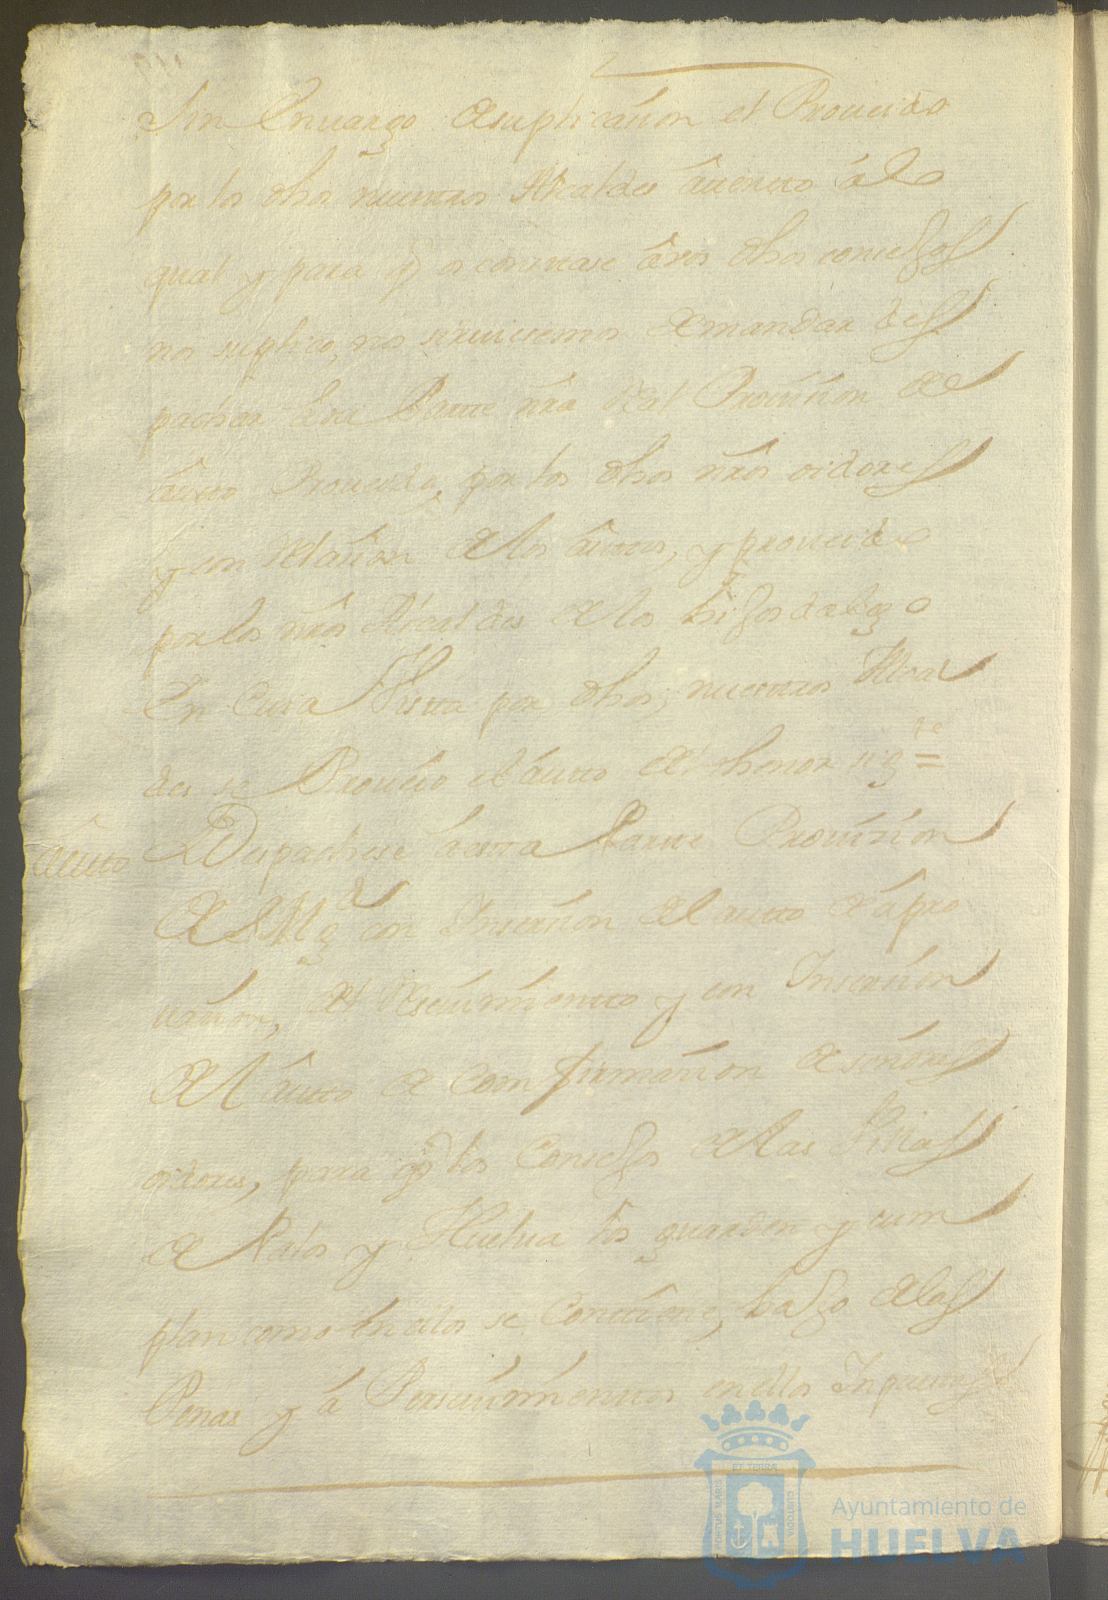 Sin Envargo de suplicasion el Proueido
por los dhos nuestros Alcaldes âuiento á lo
qual y para q̃ os constase âvos dhos consejos
nos suplico, nos siruiesemos de mandar des
pachar Esta Parte nrã Real Prouision de
âuto Proueido, por los dhos nrõs oidores
y con Relasion de los âutos, y proueido
por los nrõs Alcaldes de los hijosdalgo
En Cuia Vista por dhos, nuestros Alcal
des se Proueio el âuto del thenor sigte =
Auto
Despachese a esta Parte Prouision
de S Mgd con Insersion del auto de âpro
uasion, del Resciuimiento y con Insersion
del âuto de Comfirmasion de señores
oidores, para q̃ los Consejos de las Villas
de Palos y Huelua los guarden y cum
plan como en ellos se Contiene, bajo de las
Penas y á Perseuimientos en ellos Inpuestos
Ayuntamiento de
HUELVA